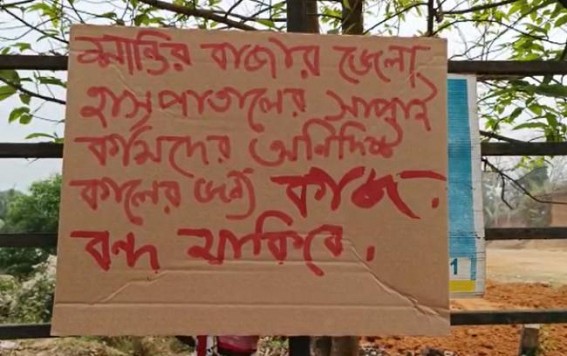 শান্তির বাজার জেলা
হাসপাতালের সাপ্লাই
কর্মিদের অনির্দিষ্ট
কালের জন্য কাজ
বন্ধ থাকিবে।
1